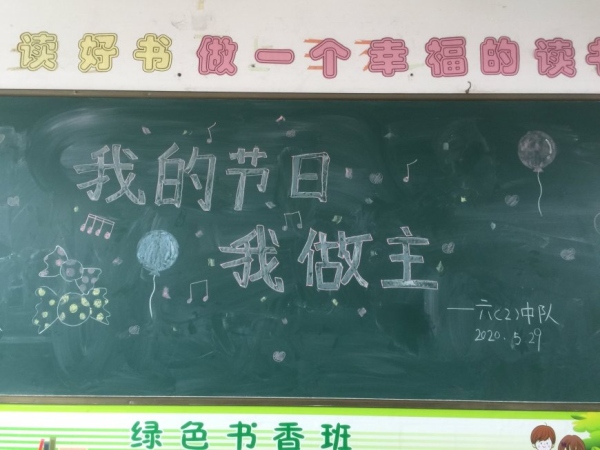 读好书做一个幸福的读书
我的节日
我做主
—六(2)中队
2020.5.29
绿色书香班